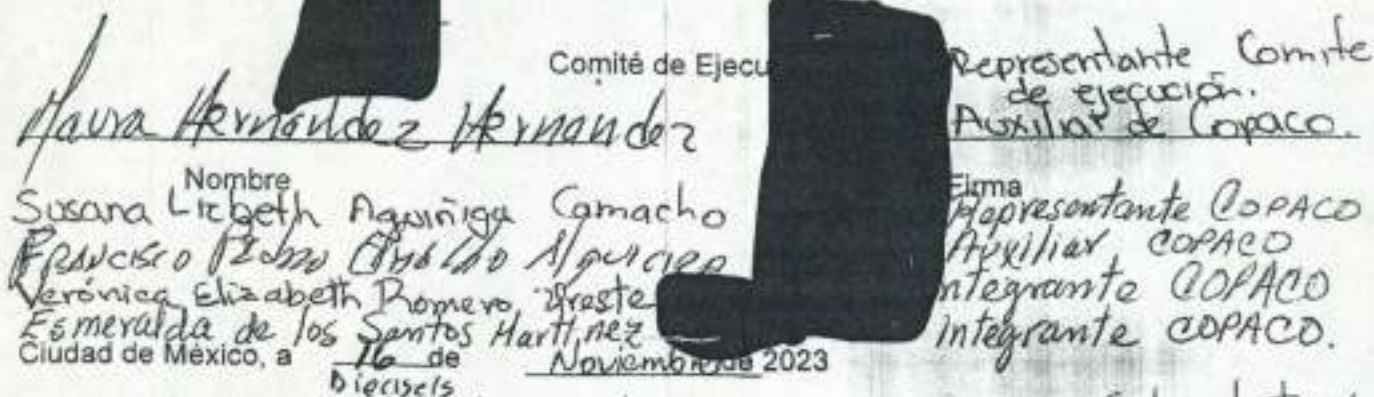 Comité de Ejecu
Representante Comite
de ejecución.
Maura Hernández Hernandez
Auxiliar de Copaco.
Nombre
Firma
Susana Lizbeth Aguiñiga Camacho
Representante COPACO
Francisco
Auxiliar COPACO
Verónica Elizabeth Romero
ntegrante COPACO
Esmeralda de los Santos Martínez
integrante COPACO.
Ciudad de México, a 16 de Noviembre de 2023
Dieciseis